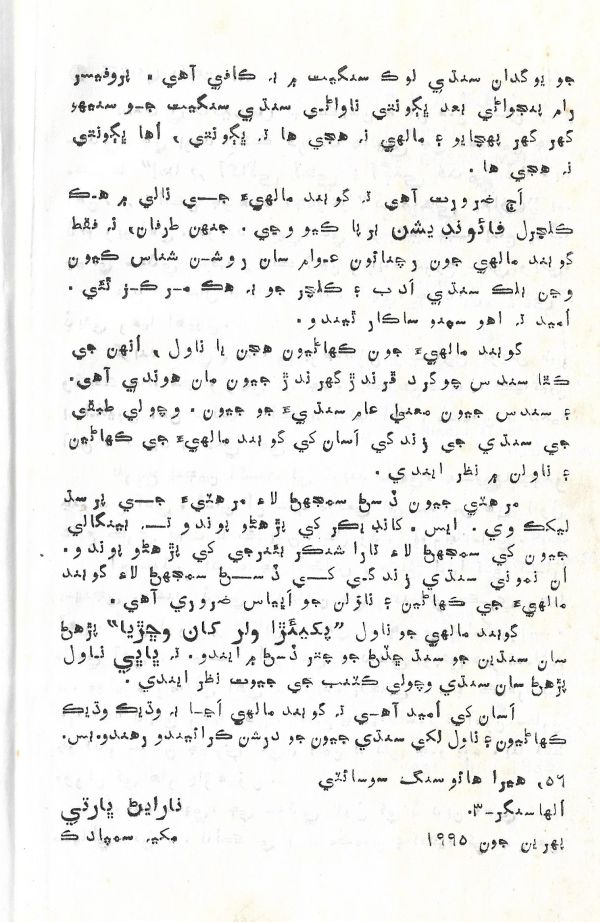 جو يوگدان سنڌي لوڪ سنگيت ۾ بہ ڪافي آهي. پروفيسر
رام پنجواڻي بعد ڀڳونتي ناواڻي سنڌي سنگيت جو سنيهو
گهر گهر پهچايو ۽ مالهي نہ هجي ها تہ ڀڳونتي، اُها ڀڳونتي
نہ هجي ها.
اڄ ضرورت آهي تہ گوبند مالهيءَ جي نالي ۾ هڪ
ڪلچرل فائونڊيشن برپا ڪيو وڃي. جنهن طرفان، نہ فقط
گوبند مالهي جون رچنائون عوام سان روشن شناس ڪيون
وڃن بلڪ سنڌي ادب ۽ ڪلچر جو بہ هڪ مرڪز ٿئي.
اُميد تہ اهو سپنو ساڪار ٿيندو.
گوبند مالهيءَ جون ڪهاڻيون هجن يا ناول، اُنهن جي
ڪٿا سندس چوگرد ڦرندڙ گهرندڙ جيون مان هوندي آهي.
۽ سندس جيون معنيٰ عام سنڌيءَ جو جيون. وچولي طبقي
جي سنڌي جي زندگي اَسان کي گوبند مالهيءَ جي ڪهاڻين
۽ ناولن ۾ نظر ايندي.
مرهٽي جيون ڏسڻ سمجهڻ لاءِ مرهٽيءَ جي پرسڌ
ليکڪ وي. ايس. کانڊيڪر کي پڙهڻو پوندو تہ بينگالي
جيون کي سمجهڻ لاءِ تارا شنڪر بئنرجي کي پڙهڻو پوندو.
اُن نموني سنڌي زندگي کي ڏسڻ سمجهڻ لاءِ گوبند
مالهيءَ جي ڪهاڻين ۽ ناولن جو اَڀياس ضروري آهي.
گوبند مالهي جو ناول ”پکيئڙا ولر کان وڇڙيا“ پڙهڻ
سان سنڌين جو سنڌ ڇڏڻ جو چتر ڏسڻ ۾ ايندو. تہ ڀاڀي ناول
پڙهڻ سان سنڌي وچولي ڪٽنب جي جيوت نظر ايندي.
اَسان کي اُميد آهي تہ گوبند مالهي اَڃا بہ وڌيڪ وڌيڪ
ڪهاڻيون ۽ ناول لکي سنڌي جيون جو درشن ڪرائيندو رهندو. بس.
٥٦، هيرا هائوسنگ سوسائٽي
اُلهاسنگر-٣.
نارايڻ ڀارتي
پهرين جون ١٩٩٥
مکيہ سمپادڪ